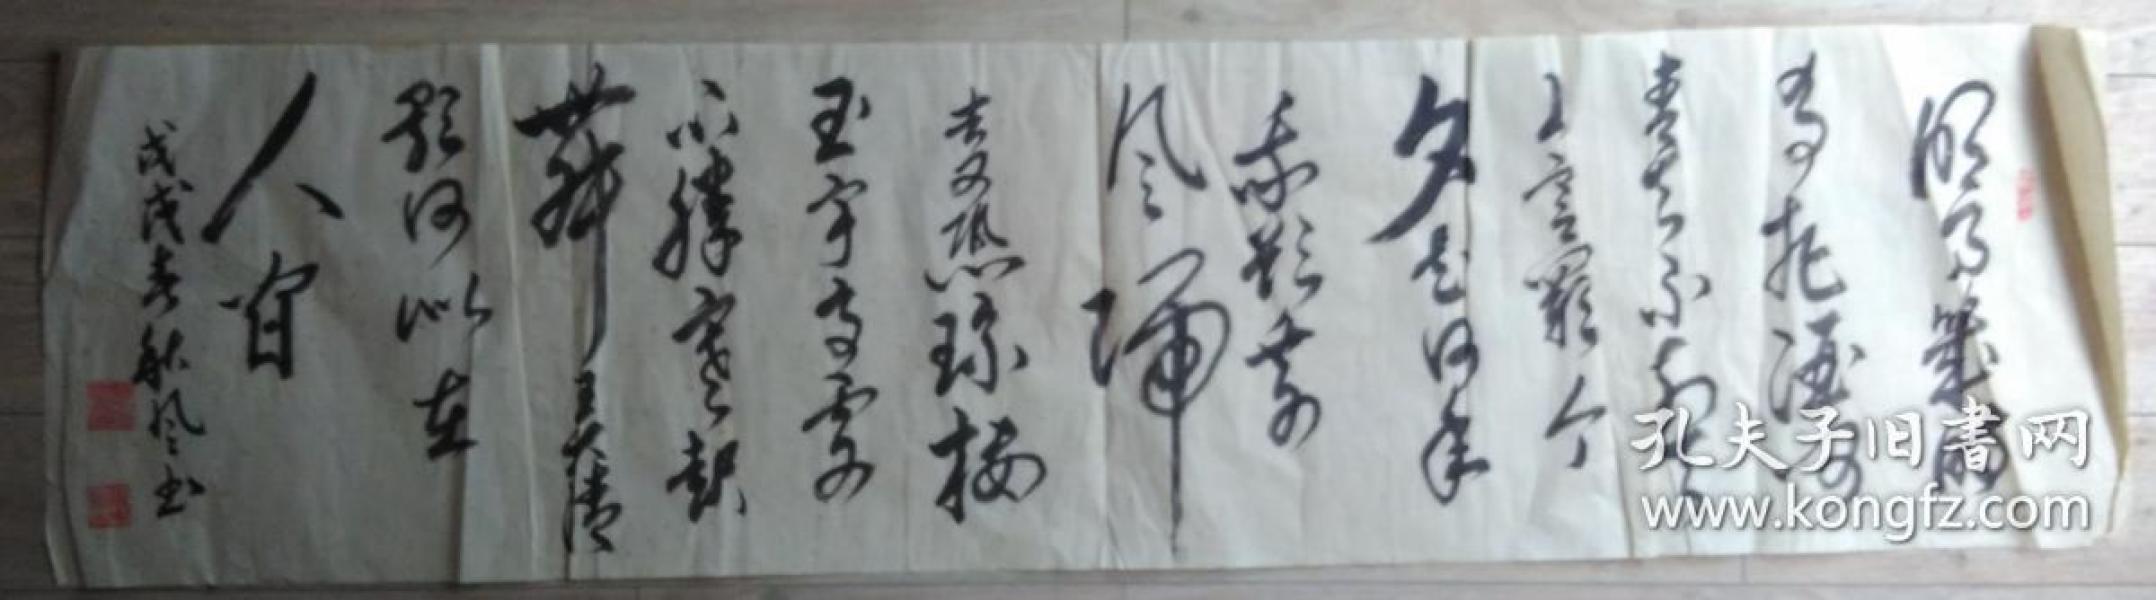 明月幾时
有把酒问
青天不知天
上宫阙今
夕是何年
我欲乘
风归
去又恐琼楼
玉宇高处
不胜寒起
舞弄清
影何似在
人间
戊戌春秋风书
孔夫子旧書网
www.kongfz.com